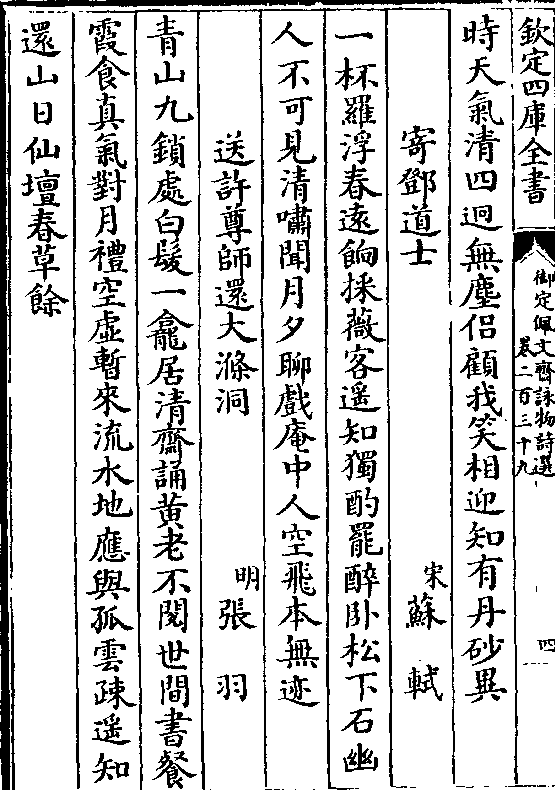 欽定四庫全書
御定佩文齋詠物詩選
卷二百三十九
四
時天氣清四迥無塵侣顧我笑相迎知有丹砂異
寄鄧道士
宋蘇軾
一杯羅浮春遠餉採薇客遥知獨酌罷醉卧松下石幽
人不可見清嘯聞月夕聊戲庵中人空飛本無迹
送許尊師還大滌洞
明張羽
青山九鎖處白髮一龕居清齋誦黄老不閱世間書餐
霞食真氣對月禮空虛暫來流水地應與孤雲疎遥知
還山日仙壇春草餘